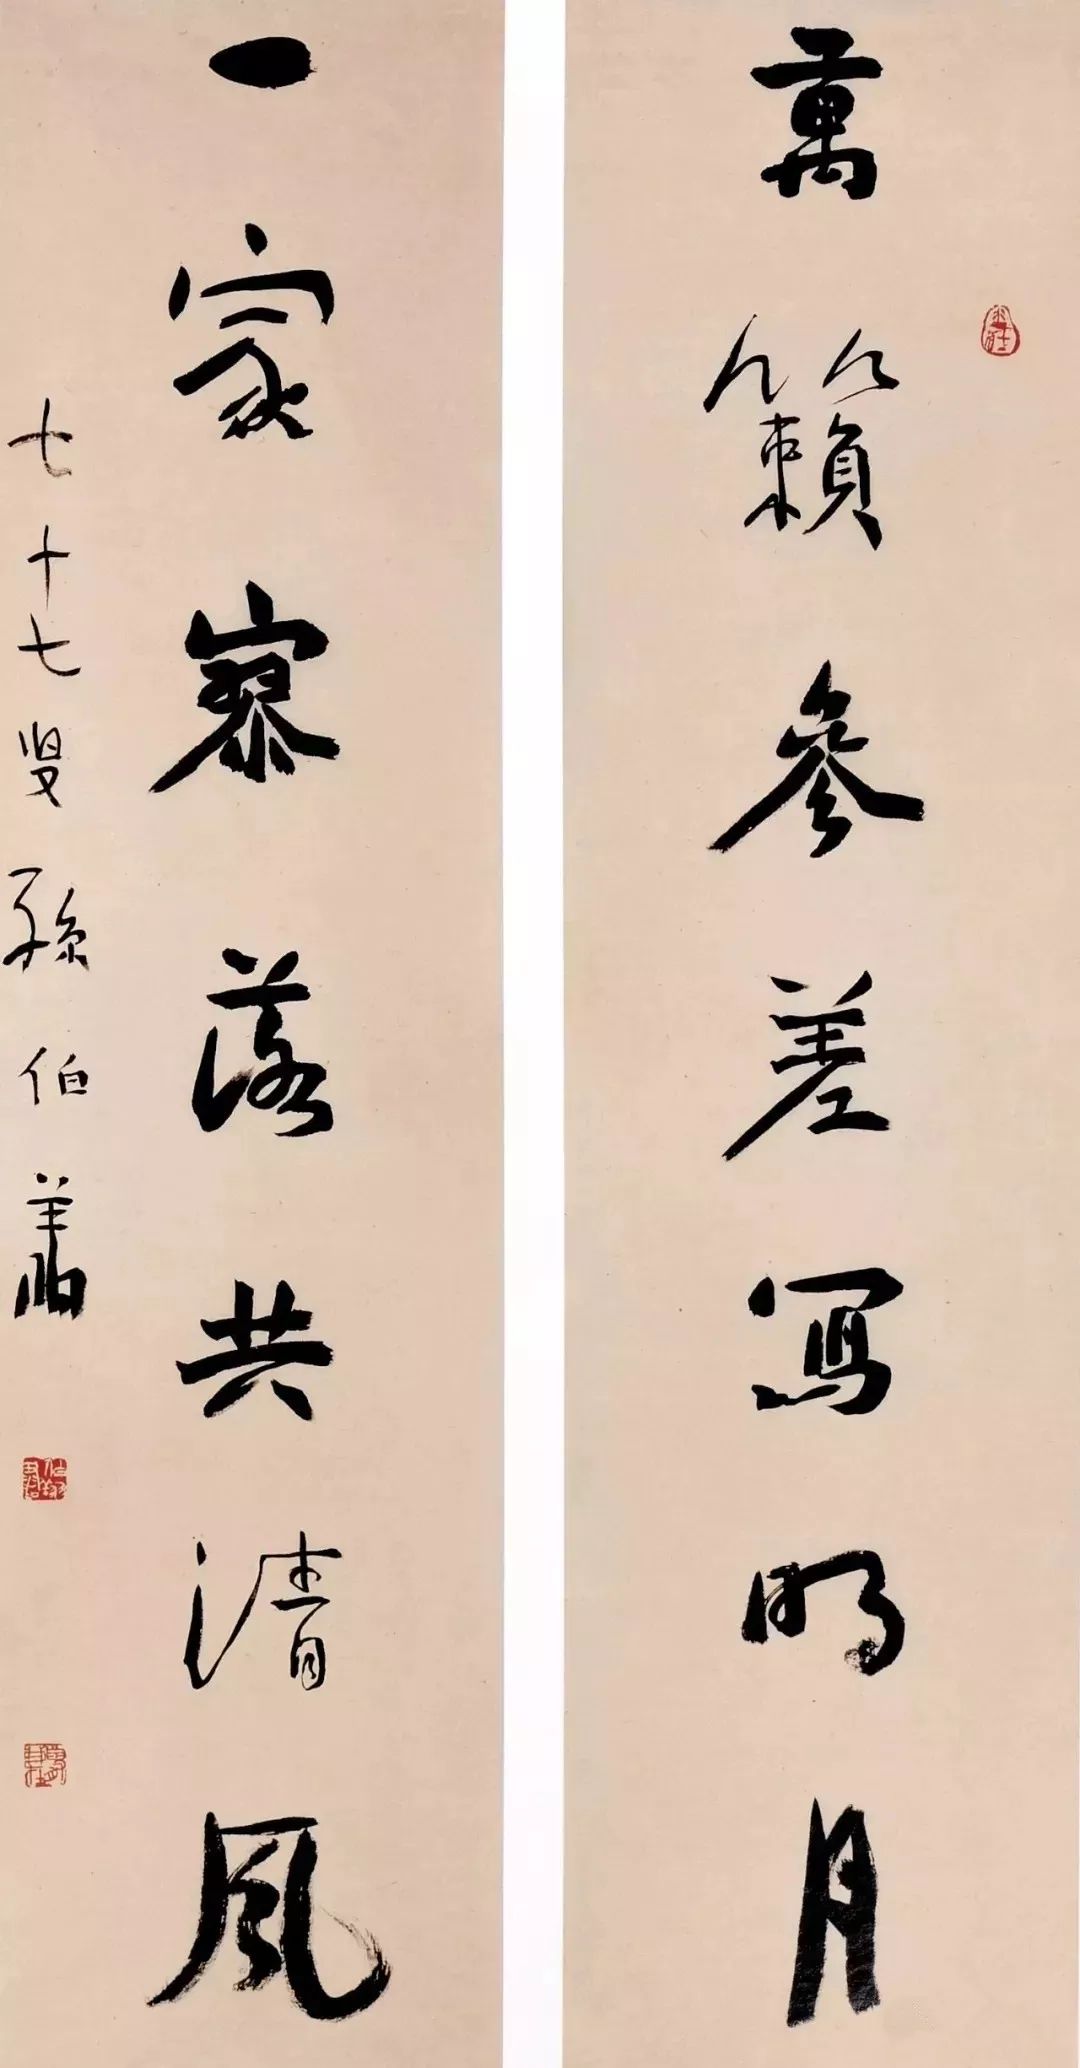 萬籟參差寫明月
一家寥落共清風
七十七叟孫伯翔